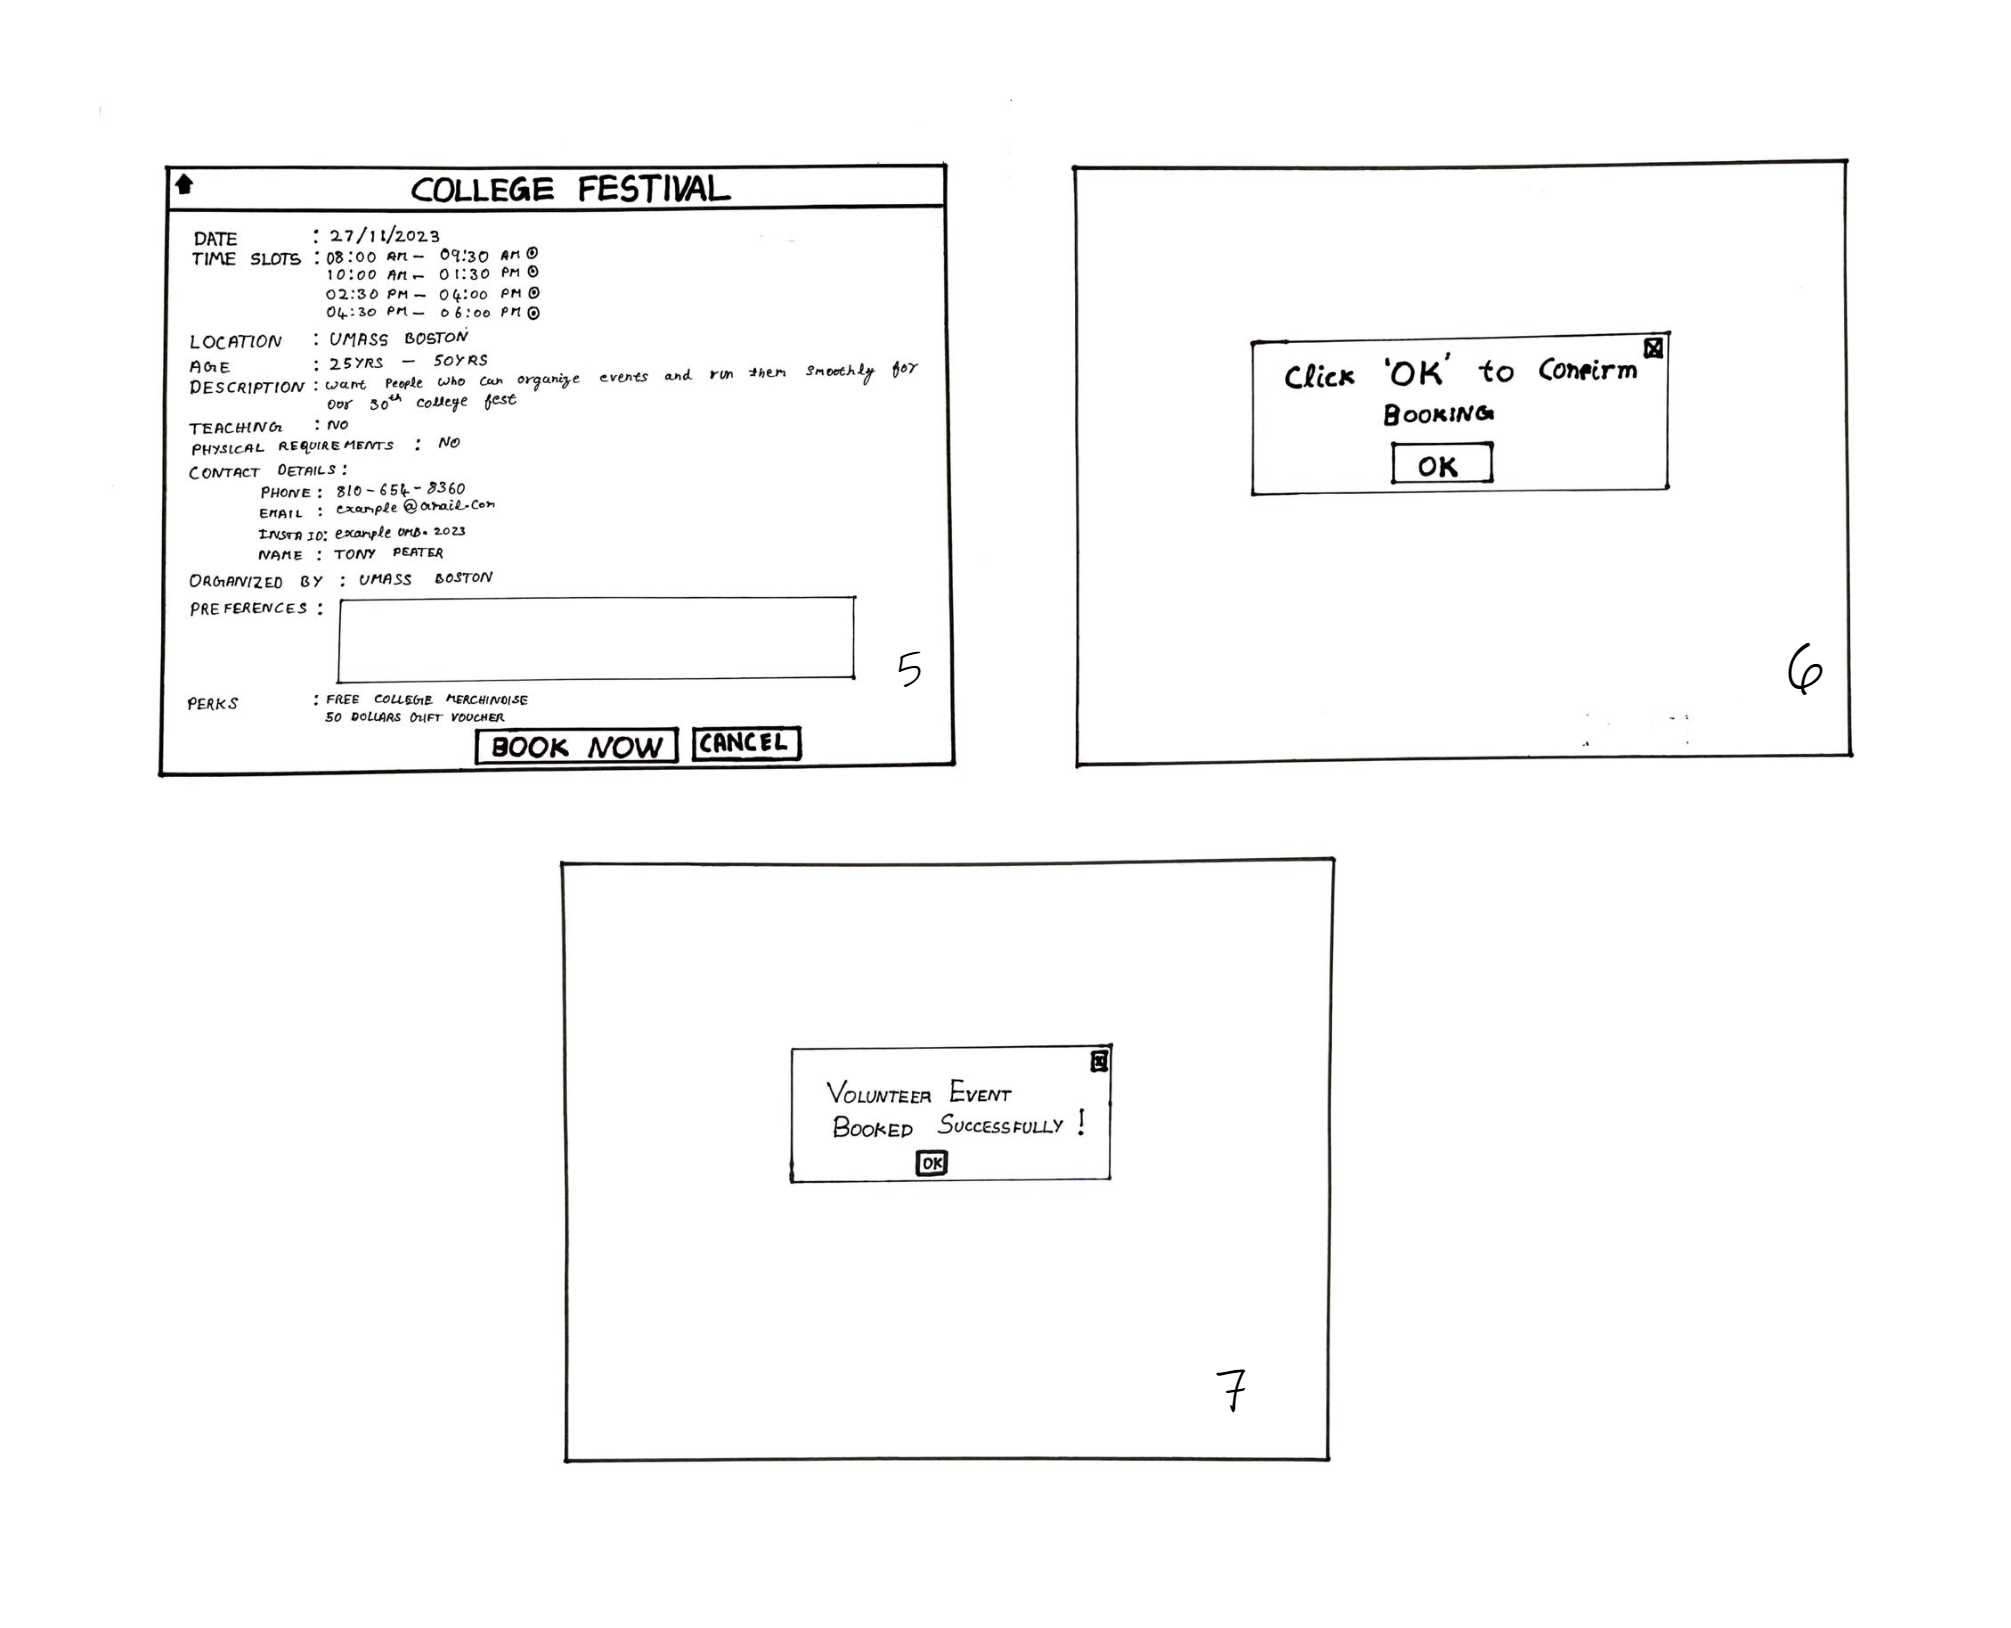 COLLEGE FESTIVAL
DATE : 27/11/2023
TIME SLOTS : 08:00 AM – 09:30 AM
10:00 AM – 01:30 PM
02:30 PM – 04:00 PM
04:30 PM – 06:00 PM
LOCATION : UMASS BOSTON
AGE : 25YRS – 50YRS
DESCRIPTION : want People who can organize events and run them smoothly for
our 30th college fest
TEACHING : NO
PHYSICAL REQUIREMENTS : NO
CONTACT DETAILS :
PHONE : 810-654-8360
EMAIL : example@
INSTA ID: example 2023
NAME : TONY PEATER
ORGANIZED BY : UMASS BOSTON
PREFERENCES :
PERKS : FREE COLLEGE MERCHINDISE
50 DOLLARS GIFT VOUCHER
BOOK NOW CANCEL
5
Click 'OK' to Confirm
BOOKING
OK
6
VOLUNTEER EVENT
BOOKED SUCCESSFULLY !
OK
7